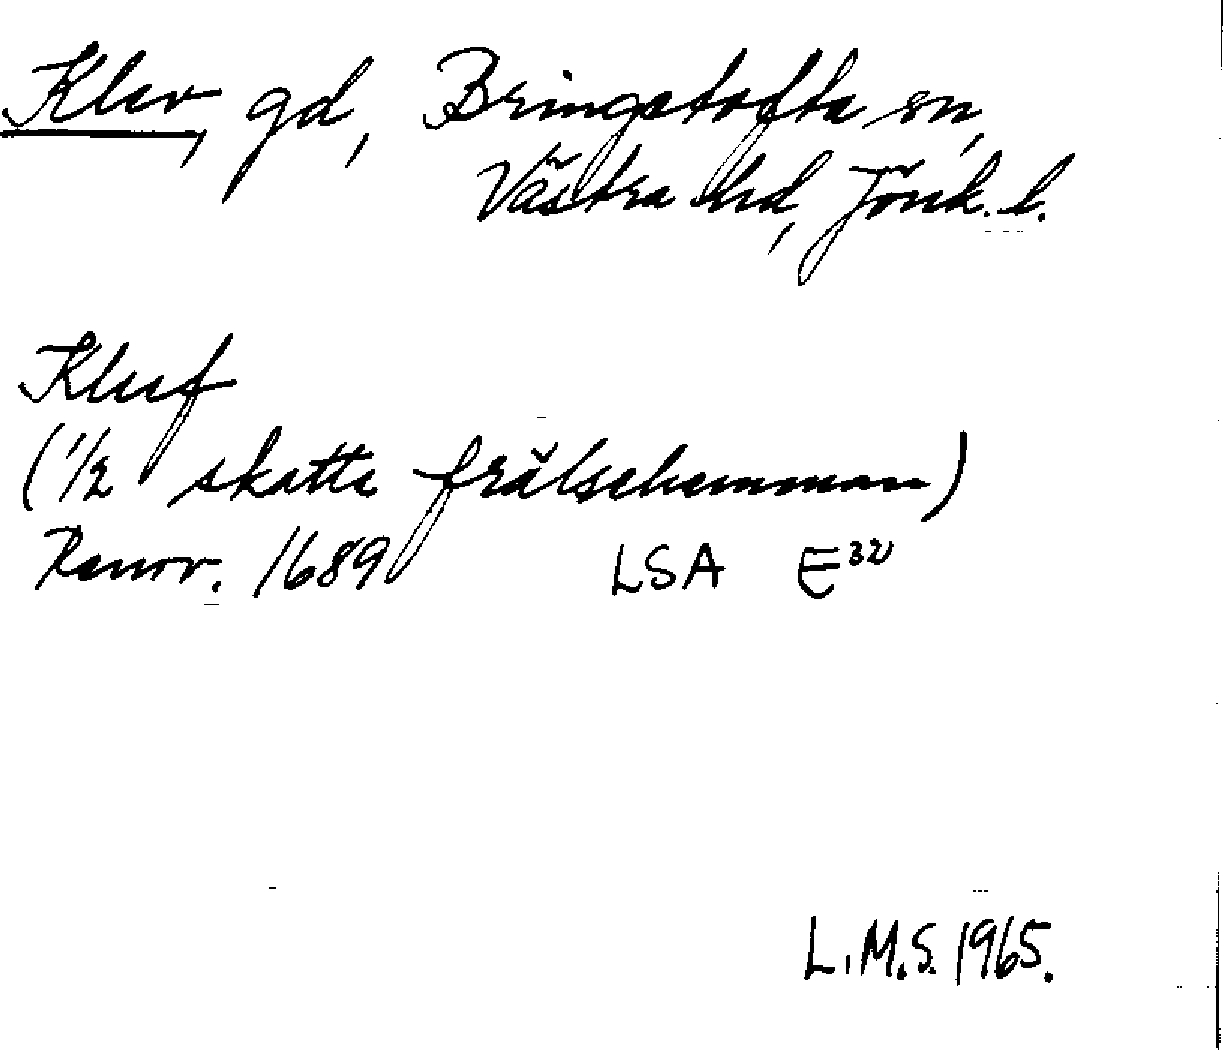 Klev, gd, Bringetofta sn,
Västra hd, Jönk. l.
Kluf
(1/2 skatte frälsehemman)
Renov. 1689 LSA E³²
L.M.S. 1965.